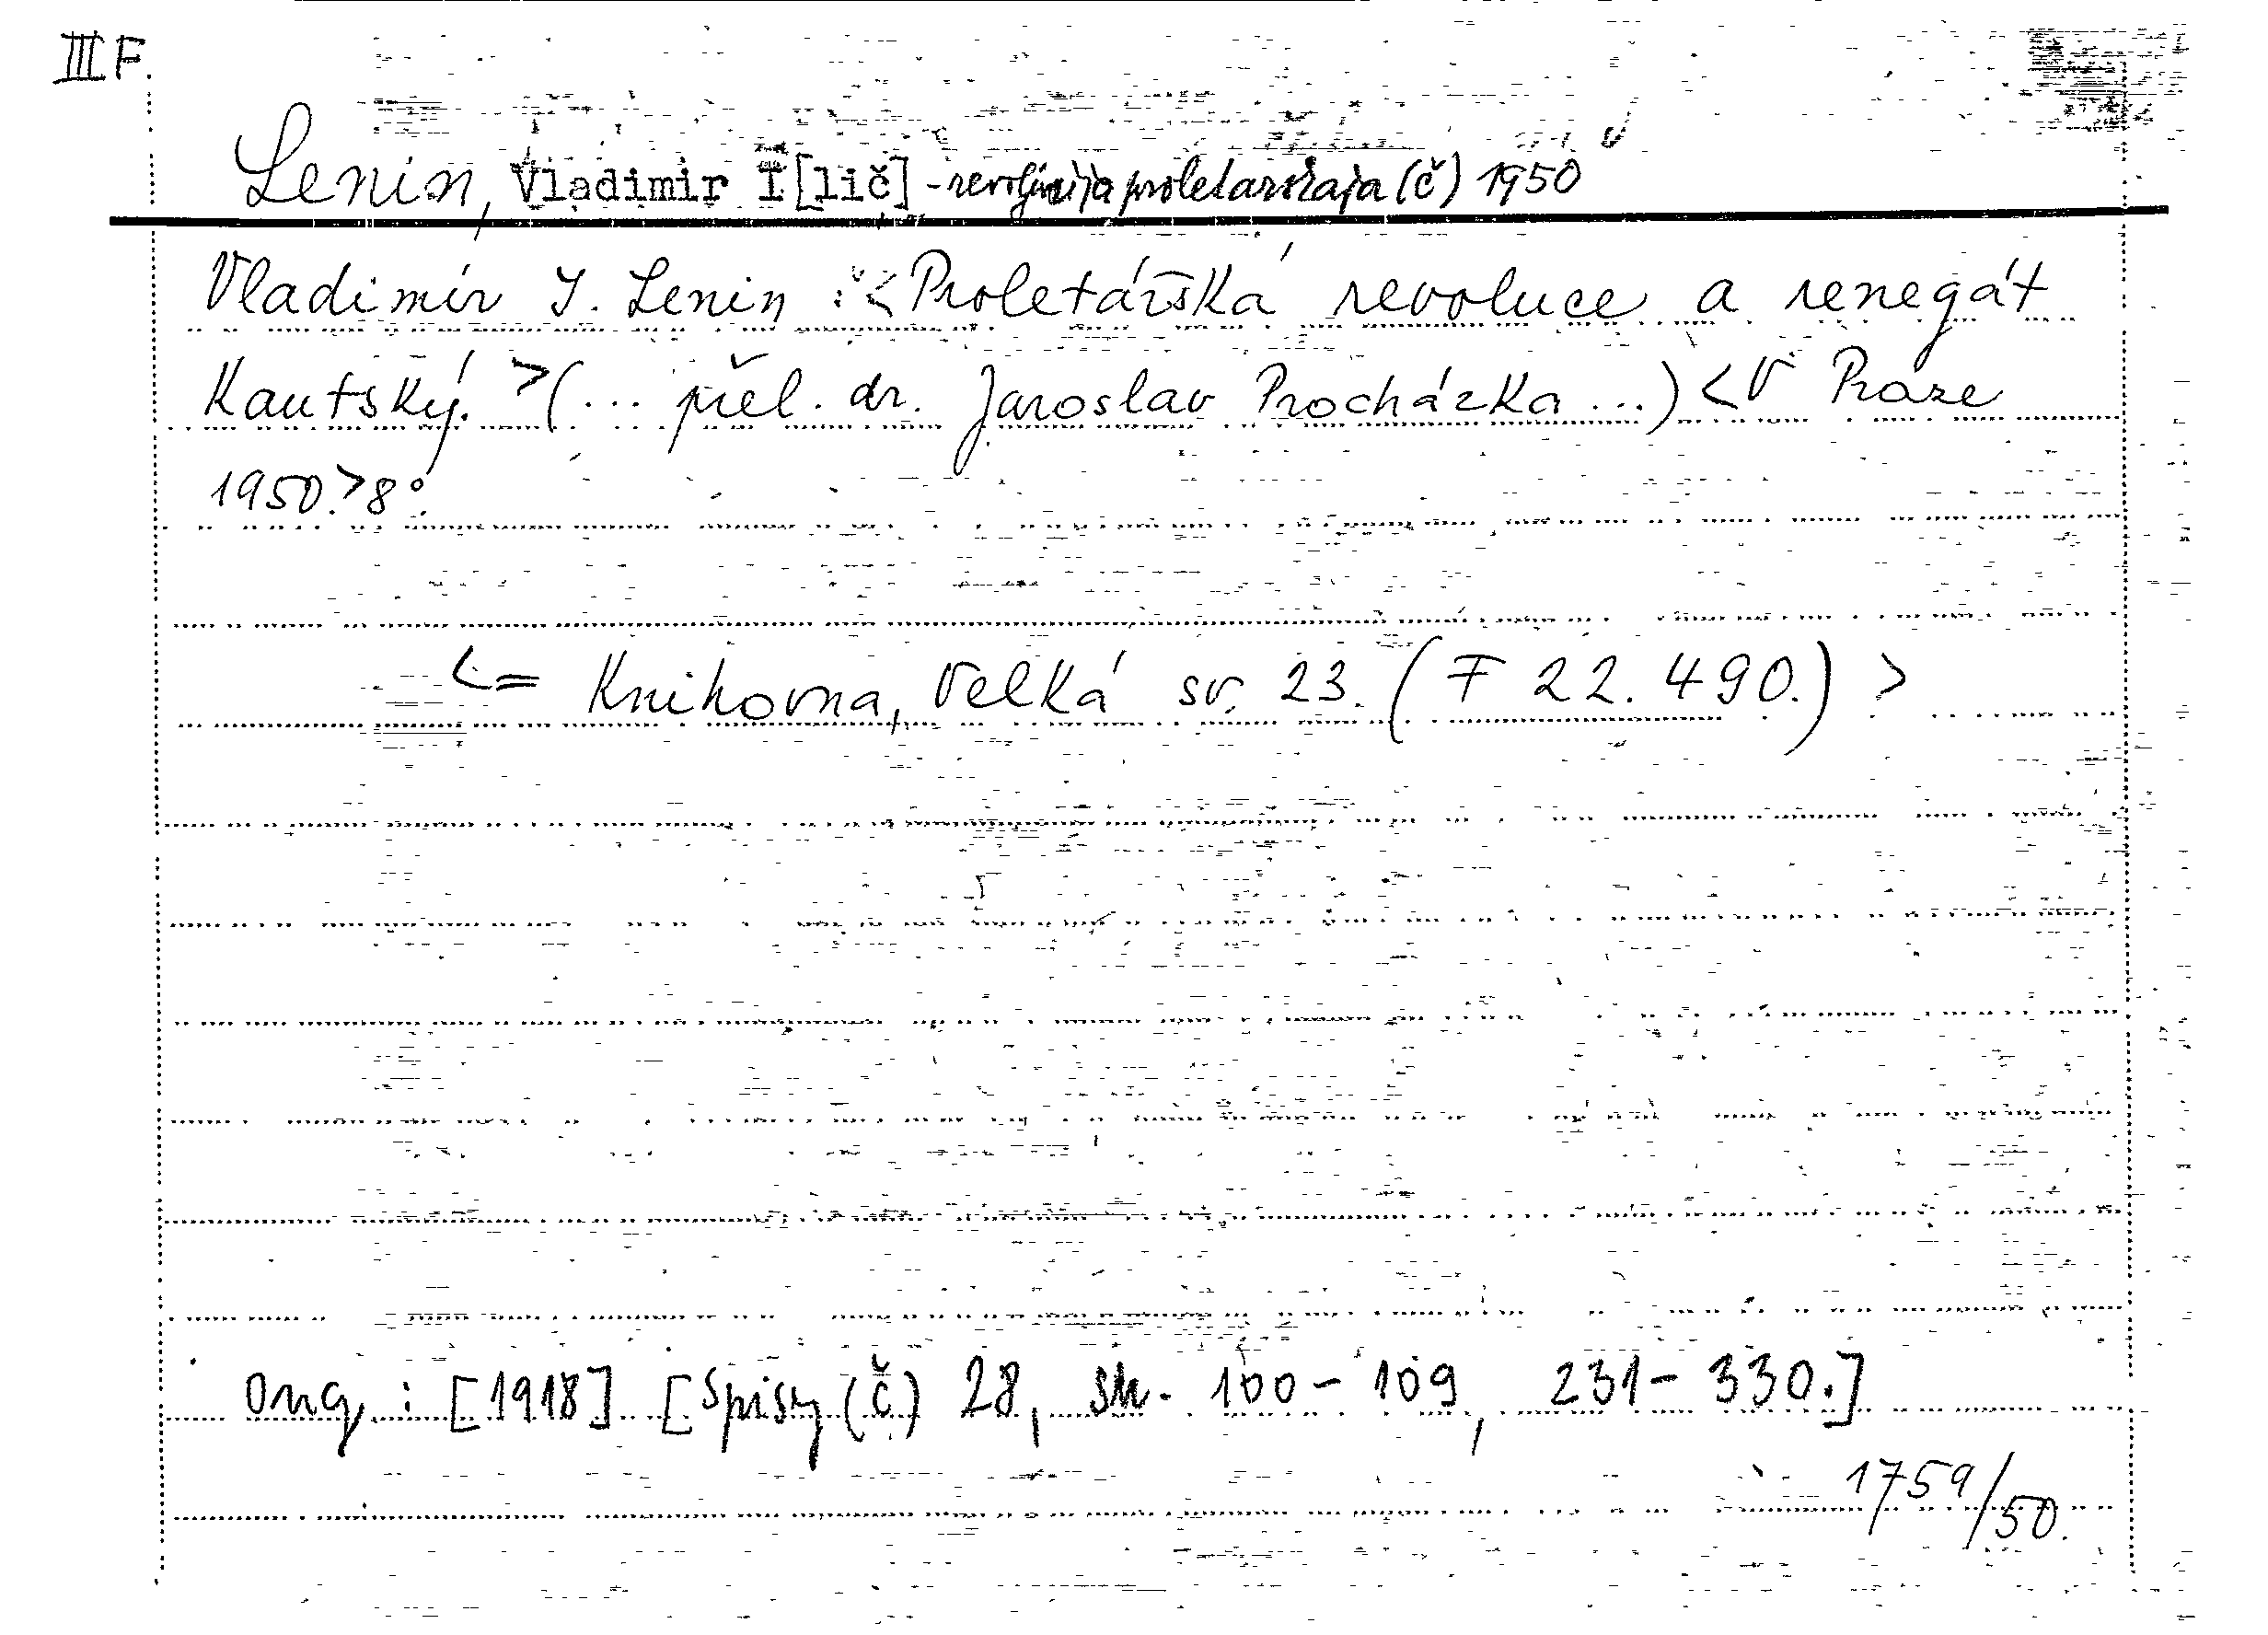 III F.
Lenin, Vladimir I[lič] - revoljucija proletarskaja (č) 1950
Vladimír I. Lenin : < Proletářská revoluce a renegát
Kautský. > (... přel. dr. Jaroslav Procházka ...) < V Praze
1950. > 8°.
< = Knihovna, Velká sv. 23. ( F 22.490. ) >
Orig. : [1918] [Spisy (č) 28, str. 100-109, 231-330.]
1759/50.